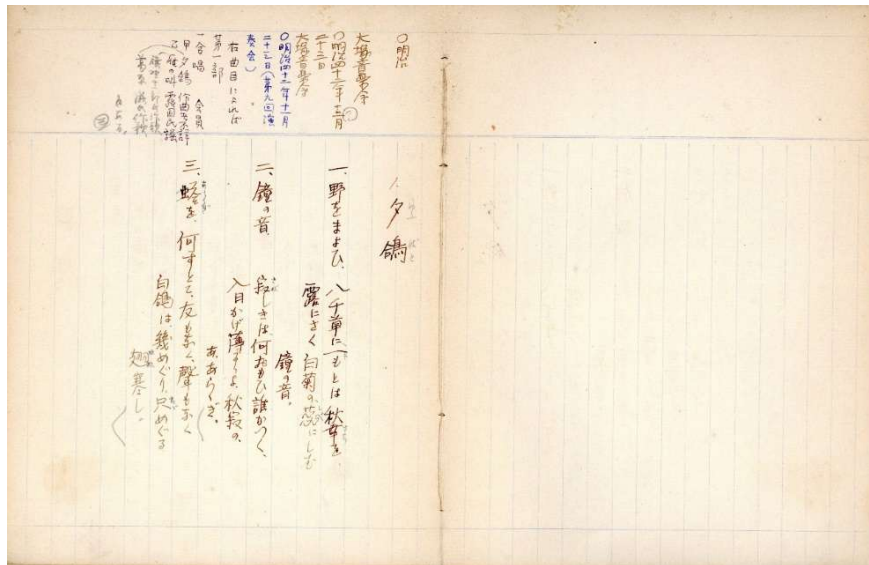 〇明治
大塚音楽会
〇明治四十二年十一月
二十三日
大塚音楽会
〇明治四十二年十一月
二十三日(第九回演
奏会)
右曲目によれば
第一部
一、合唱 会員
甲 夕鴿
乙 露国民謡
夕鴿
一、野をまよひ、八千草に、もとは秋草を、
露にさく白菊の、蕊にしむ
鐘の音。
二、鐘の音、寂しきは、何おもひ誰がつく、
入日かげ薄すらよ、秋寂の、
あ、あららぎ。
三、蹌を、何すとて、友もなく、聲もなく
白鴿は、幾めぐり、尺めぐる
翅寒し。